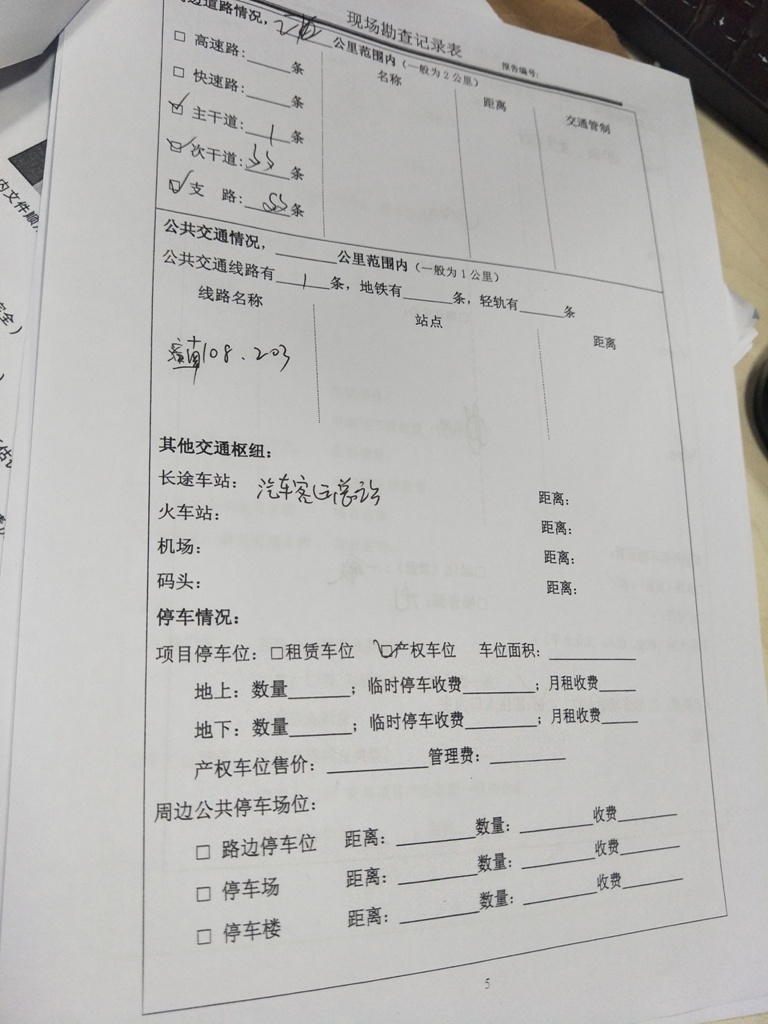 现场勘查记录表
报告编号:
边道路情况, 公里范围内（一般为2公里）
名称 距离 交通管制
□ 高速路:____条
□ 快速路:____条
☑ 主干道: 1 条
☑ 次干道:____条
☑ 支 路:____条
公共交通情况, ______公里范围内（一般为1公里）
公共交通线路有 1 条, 地铁有_____条, 轻轨有_____条
线路名称 站点 距离
108、203
其他交通枢纽:
长途车站: 汽车客运总站 距离:
火车站: 距离:
机场: 距离:
码头: 距离:
停车情况:
项目停车位: □租赁车位 ☑产权车位 车位面积: ________
地上: 数量______; 临时停车收费_______; 月租收费____
地下: 数量______; 临时停车收费_______; 月租收费____
产权车位售价: _________管理费: _______
周边公共停车场位:
□ 路边停车位 距离: _______数量: _______收费______
□ 停车场 距离: _______数量: _______收费______
□ 停车楼 距离: _______数量: _______收费______
5